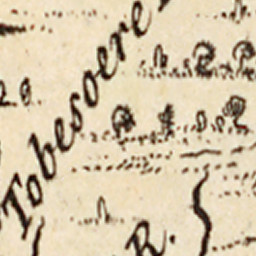 Tobesoere
R.